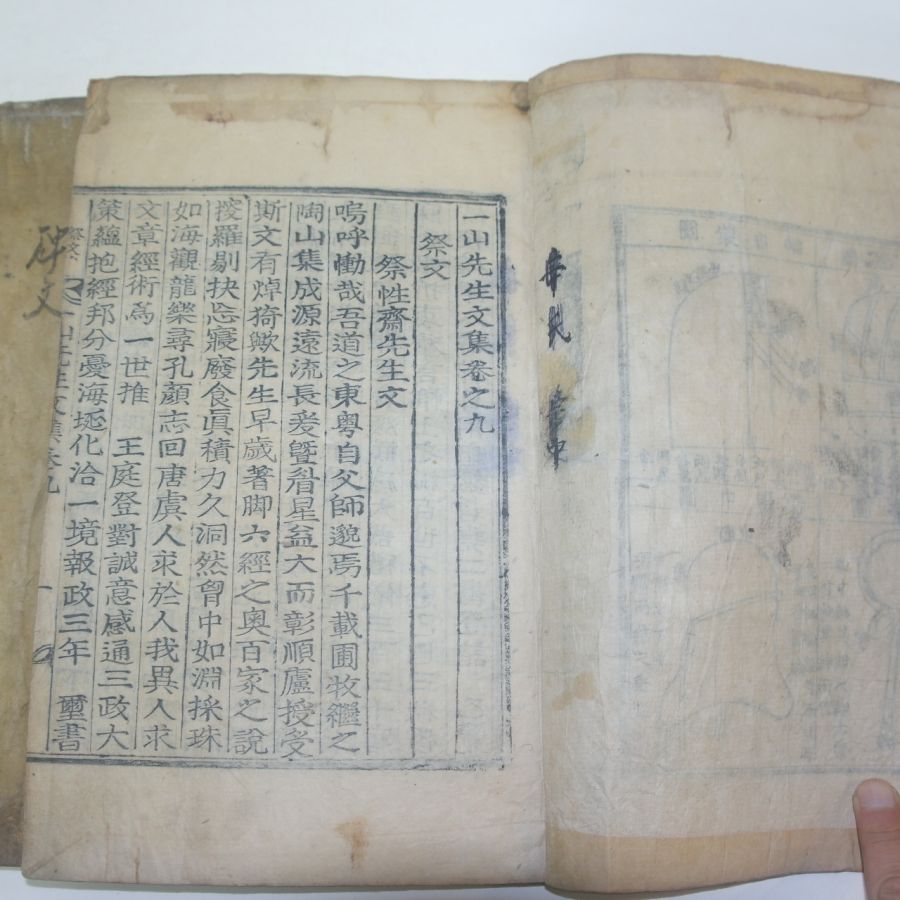 一山先生文集卷之九
祭文
祭性齋先生文
嗚呼慟哉吾道之東粤自父師邈焉千載圃牧繼之
陶山集成源遠流長爰曁眉星益大而彰順廬授受
斯文有焯猗歟先生早歲著脚六經之奥百家之說
搜羅剔抉忘寢廢食眞積力久洞然胷中如淵採珠
如海觀龍樂尋孔顔志回唐虞人求於人我異人求
文章經術爲一世推 王庭登對誠意感通三政大
策蘊抱經邦分憂海堧化洽一境報政三年 璽書
碑文